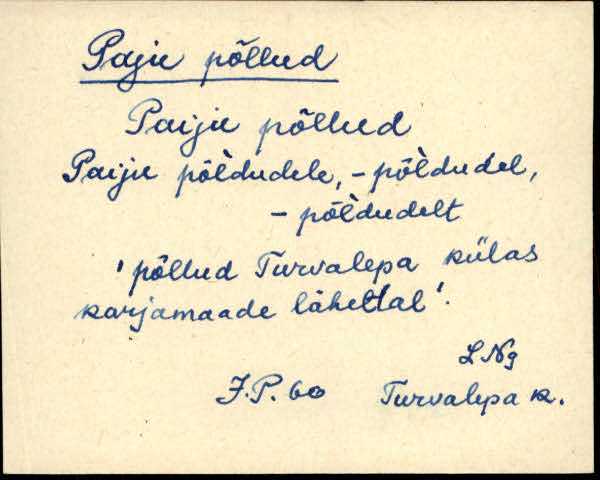 Paju põllud
Paiju põllud
Paiju põl̀dudele, - põl̀dudel,
- põl̀dudelt
'põllud Turvalepa külas
karjamaade lähedal'.
LNg
J.P. 60 Turvalepa k.